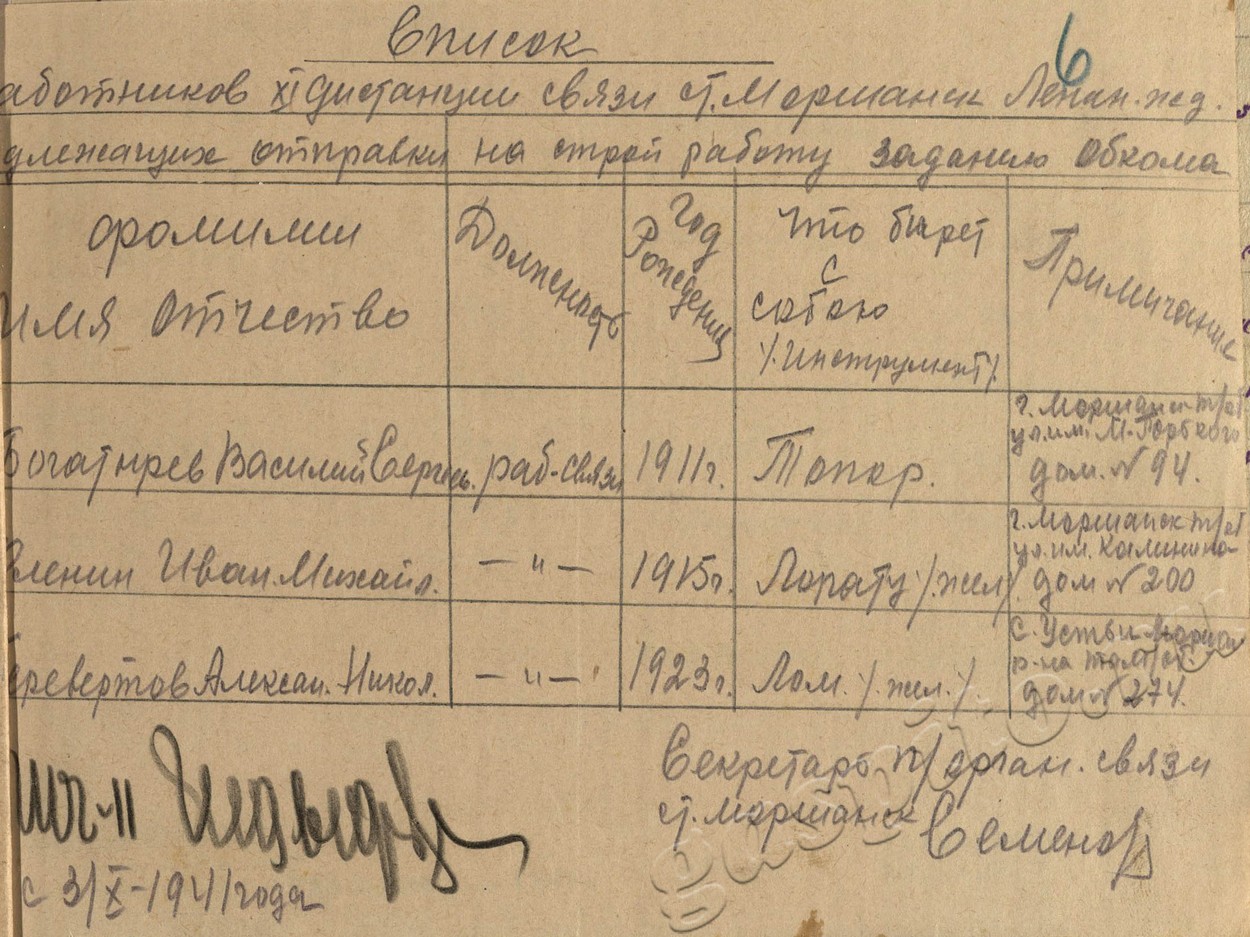 Список
6
аботников XI дистанции связи ст. Моршанск Ленин. жд.
длежащих отправки на строй работу заданию Обкома
фомилии
Имя Отчество
Должность
Год
Рождения
Что бырет
с
сабою
/.Инструмент/.
Примичание
Богатырев Василий Сергеев. раб-связи 1911г. Топор.
г. Моршанск т/об
ул. им. М. Горького
дом. № 94.
вленин Иван. Михайл. — " — 1915г. Лопату /.жел/.
г. Моршанск т/об
ул. им. Калинина
дом № 200
еревертов Алексан. Никол. — " — 1923г. Лом. /. жел. /.
с. Устьи Моршан
р-на там/об.
дом № 274.
шч-11
Секретарь п/орган. связи
ст. Моршанск Семенов
с 3/X-1941 года